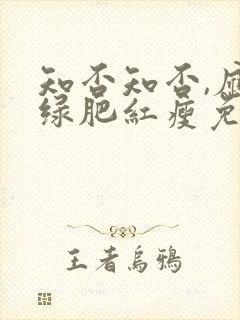 知否知否,应
绿肥红瘦免
王者乌鸦